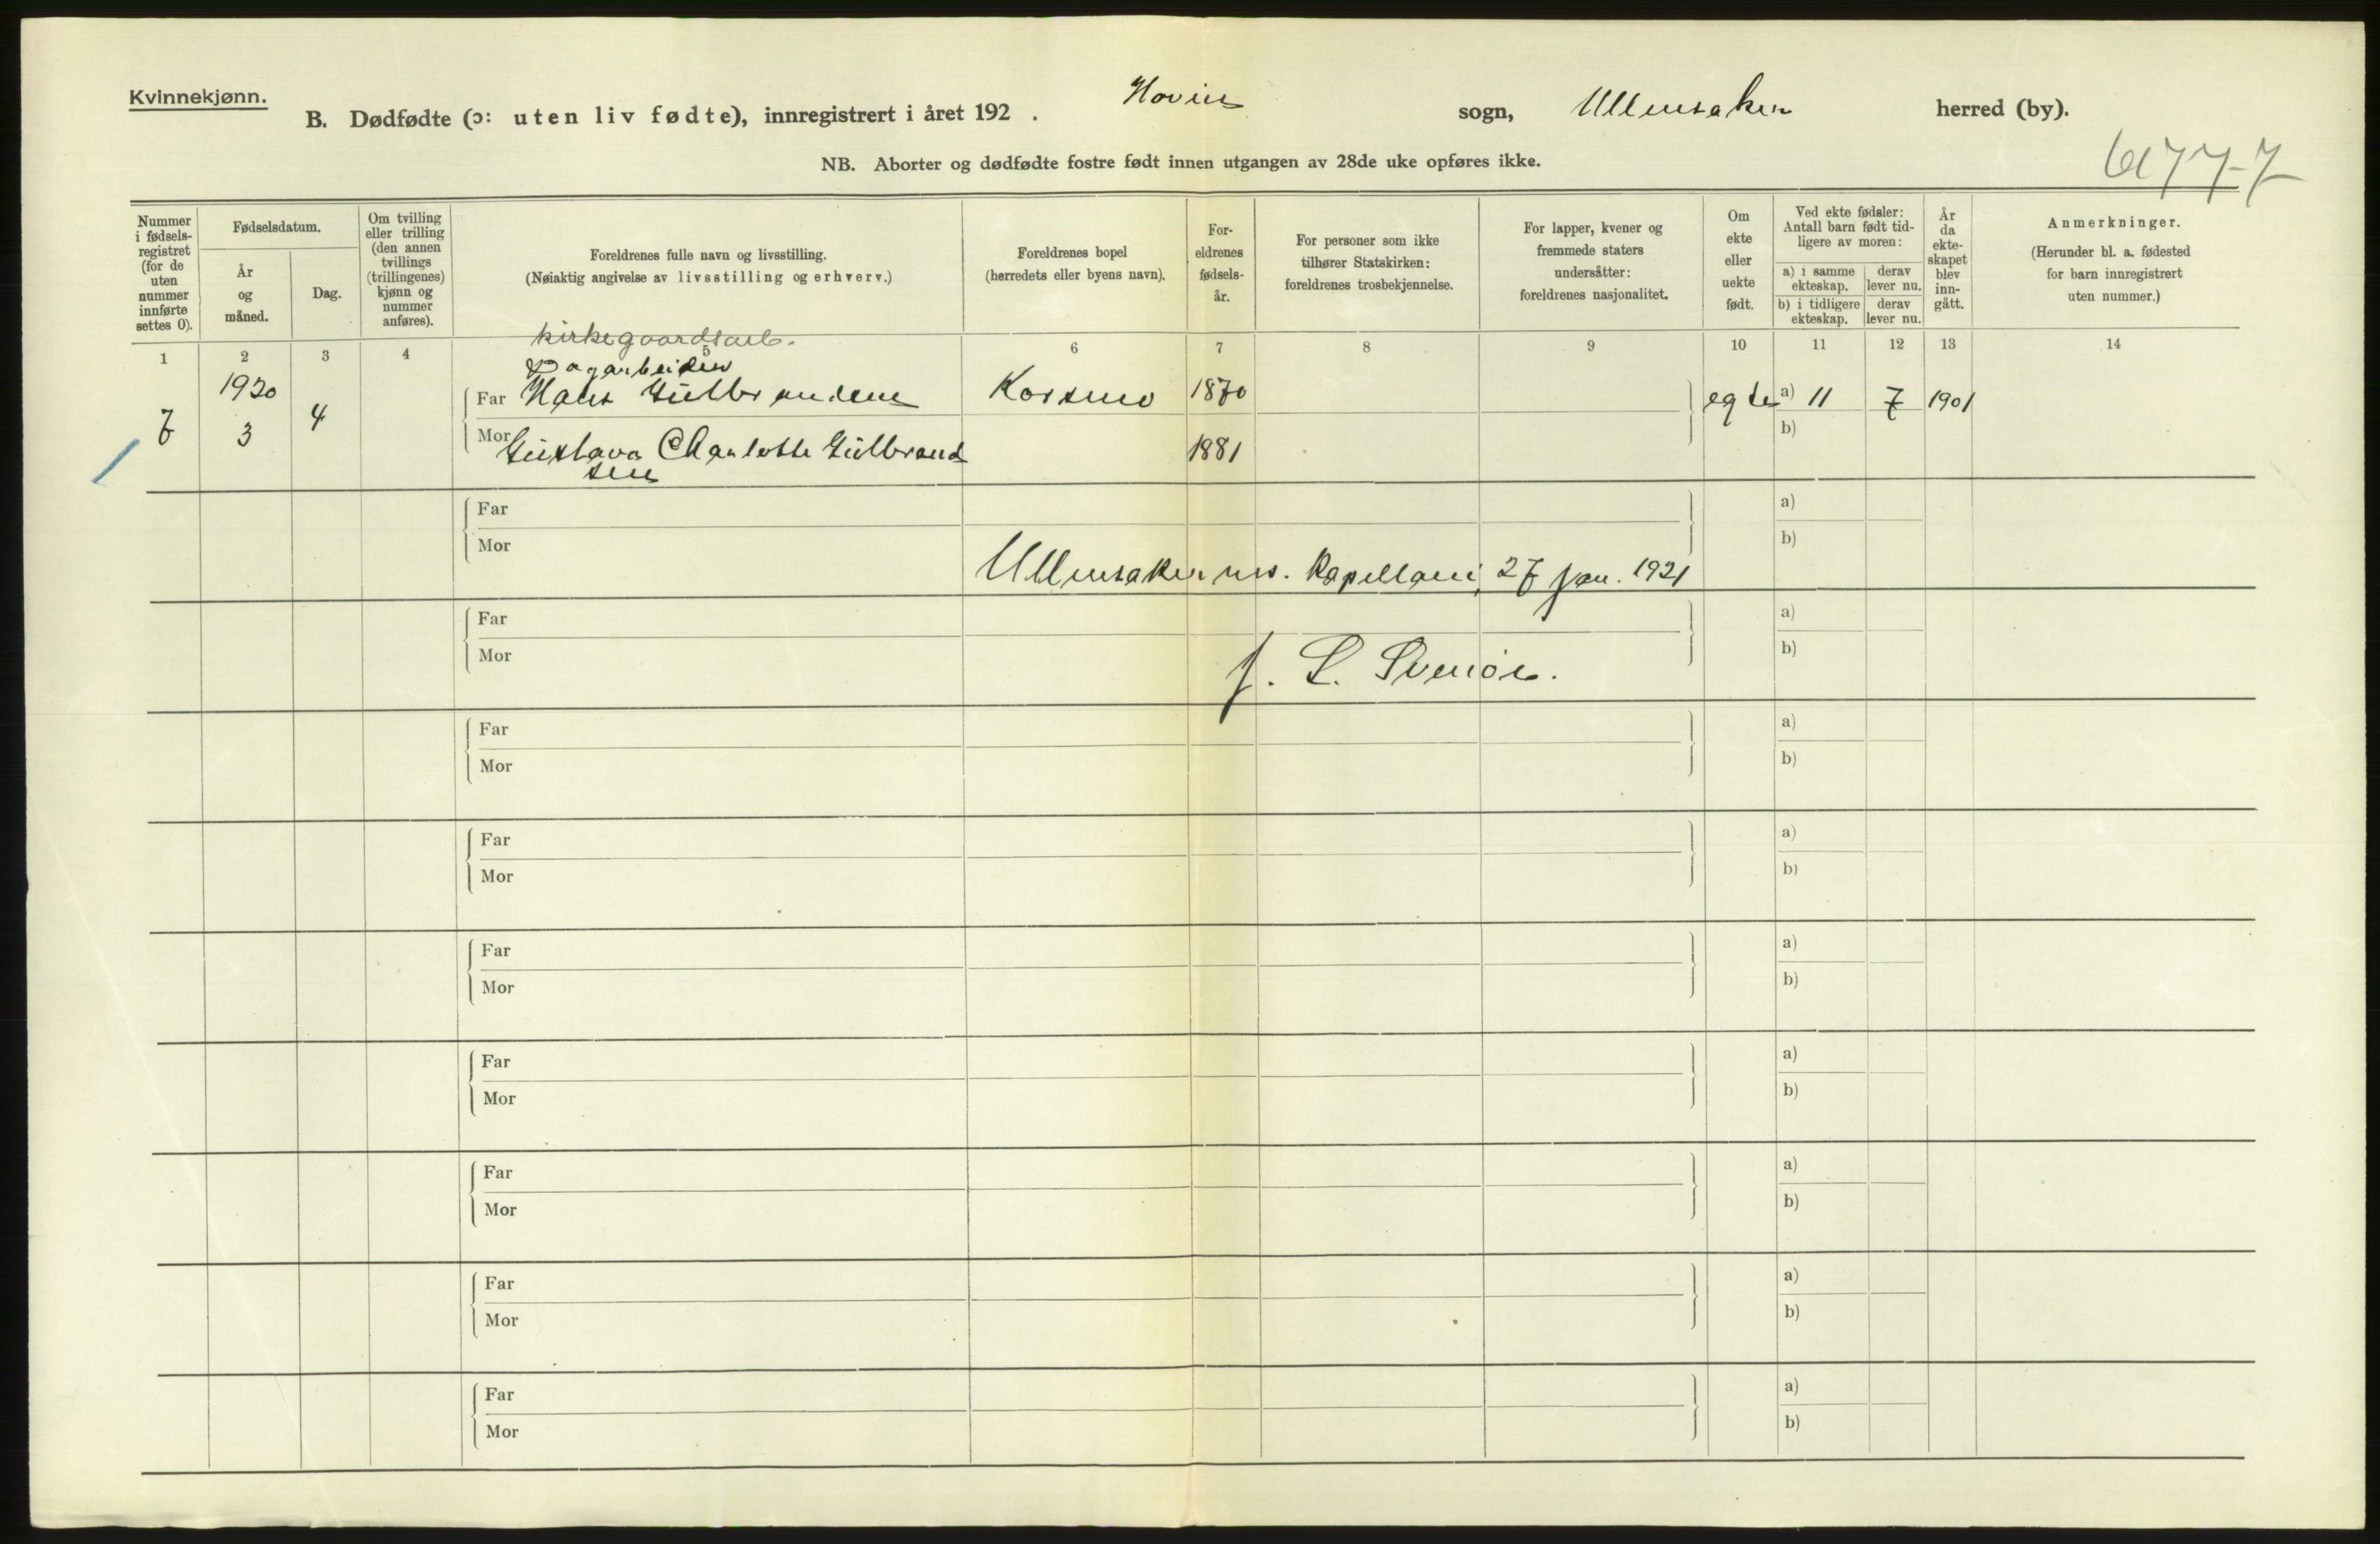 Kvinnekjønn.
B. Dødfødte (ɔ: uten liv fødte), innregistrert i året 192 . Hovin sogn, Ullensaker herred (by).
NB. Aborter og dødfødte fostre født innen utgangen av 28de uke opføres ikke.
Nummer i fødsels-registret (for de uten nummer innførte settes 0).
Fødselsdatum.
År og måned.
Dag.
Om tvilling eller trilling (den annen tvillings (trillingenes) kjønn og nummer anføres).
Foreldrenes fulle navn og livsstilling.
(Nøiaktig angivelse av livsstilling og erhverv.)
Foreldrenes bopel
(herredets eller byens navn).
For-eldrenes fødsels-år.
For personer som ikke tilhører Statskirken: foreldrenes trosbekjennelse.
For lapper, kvener og fremmede staters undersåtter: foreldrenes nasjonalitet.
Om ekte eller uekte født.
Ved ekte fødsler: Antall barn født tid-ligere av moren:
a) i samme ekteskap.
derav lever nu.
b) i tidligere ekteskap.
derav lever nu.
År da ekte-skapet blev inn-gått.
Anmerkninger.
(Herunder bl. a. fødested for barn innregistrert uten nummer.)
kirkegaardsarb.
1 2 3 4 5 6 7 8 9 10 11 12 13 14
Dagarbeider
7 1920 3 4 Far Hans Gulbrandsen Korsmo 1870 egte a) 11 7 1901
Mor Gustava Charlotte Gulbrand 1881 b)
sen
Far a)
Mor b)
Ullensaker res. kapellani, 27 jan. 1921
Far a)
Mor b)
J. L. Svenør.
Far a)
Mor b)
Far a)
Mor b)
Far a)
Mor b)
Far a)
Mor b)
Far a)
Mor b)
Far a)
Mor b)
Far a)
Mor b)